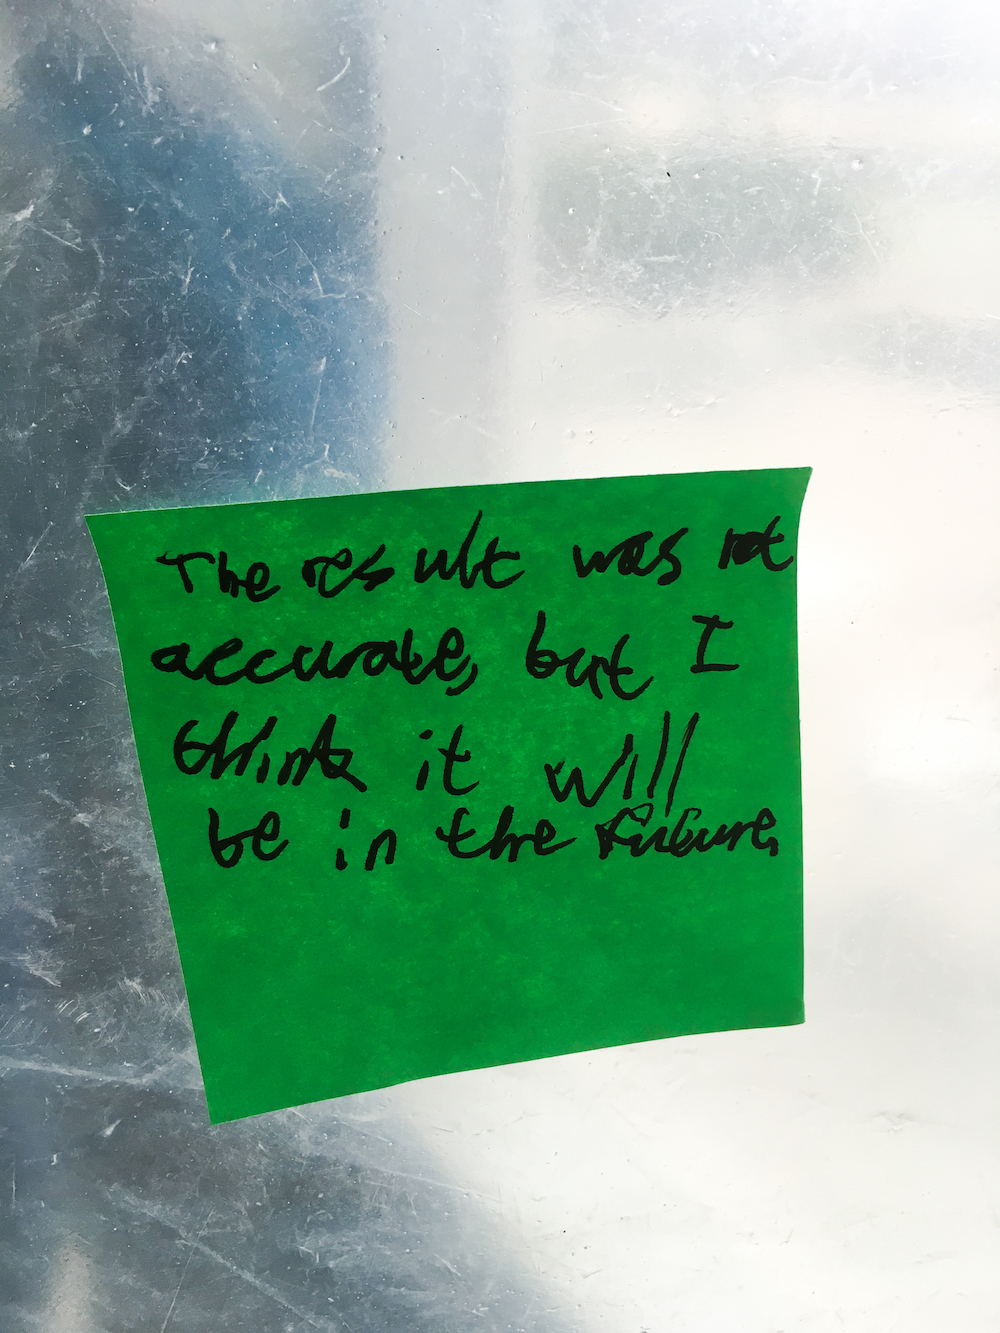 The result was not
accurate, but I
think it will
be in the future.